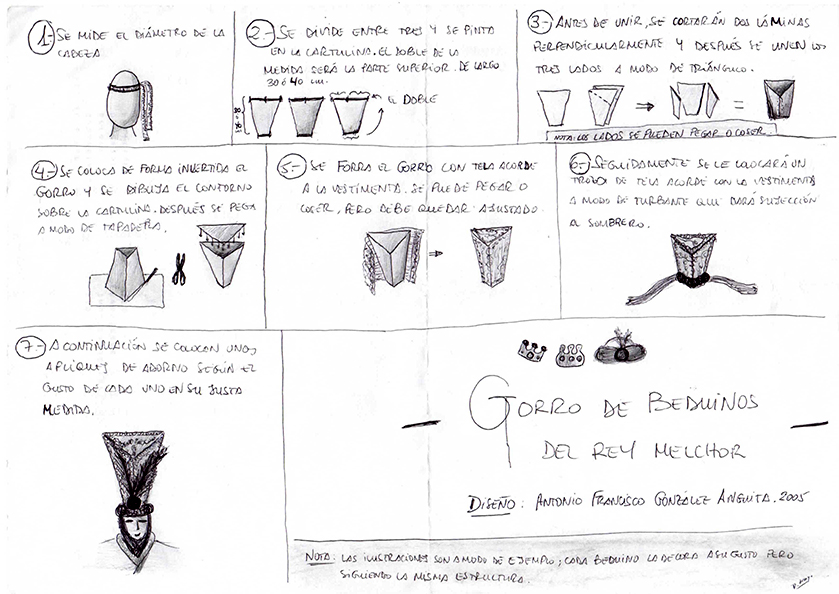 1.- SE MIDE EL DIÁMETRO DE LA
CABEZA
2.- SE DIVIDE ENTRE TRES Y SE PINTA
EN LA CARTULINA. EL DOBLE DE LA
MEDIDA SERÁ LA PARTE SUPERIOR. DE LARGO
30 ó 40 cm.
EL DOBLE
3.- ANTES DE UNIR, SE CORTARÁN DOS LÁMINAS
PERPENDICULARMENTE Y DESPUÉS SE UNEN LOS
TRES LADOS A MODO DE TRIÁNGULO.
NOTA: LOS LADOS SE PUEDEN PEGAR O COSER
4.- SE COLOCA DE FORMA INVERTIDA EL
GORRO Y SE DIBUJA EL CONTORNO
SOBRE LA CARTULINA. DESPUÉS SE PEGA
A MODO DE TAPADERA.
5.- SE FORRA EL GORRO CON TELA ACORDE
A LA VESTIMENTA. SE PUEDE PEGAR O
COSER, PERO DEBE QUEDAR AJUSTADO.
6.- SEGUIDAMENTE SE LE COLOCARÁ UN
TROZO DE TELA ACORDE CON LA VESTIMENTA
A MODO DE TURBANTE QUE DARÁ SUJECCIÓN
AL SOMBRERO.
7.- A CONTINUACIÓN SE COLOCAN UNOS
APLIQUES DE ADORNO SEGÚN EL
GUSTO DE CADA UNO EN SU JUSTA
MEDIDA.
GORRO DE BEDUINOS
DEL REY MELCHOR
DISEÑO: ANTONIO FRANCISCO GONZÁLEZ ANGUITA. 2005
NOTA: LAS ILUSTRACIONES SON A MODO DE EJEMPLO; CADA BEDUINO LA DECORA A SU GUSTO PERO
SIGUIENDO LA MISMA ESTRUCTURA.